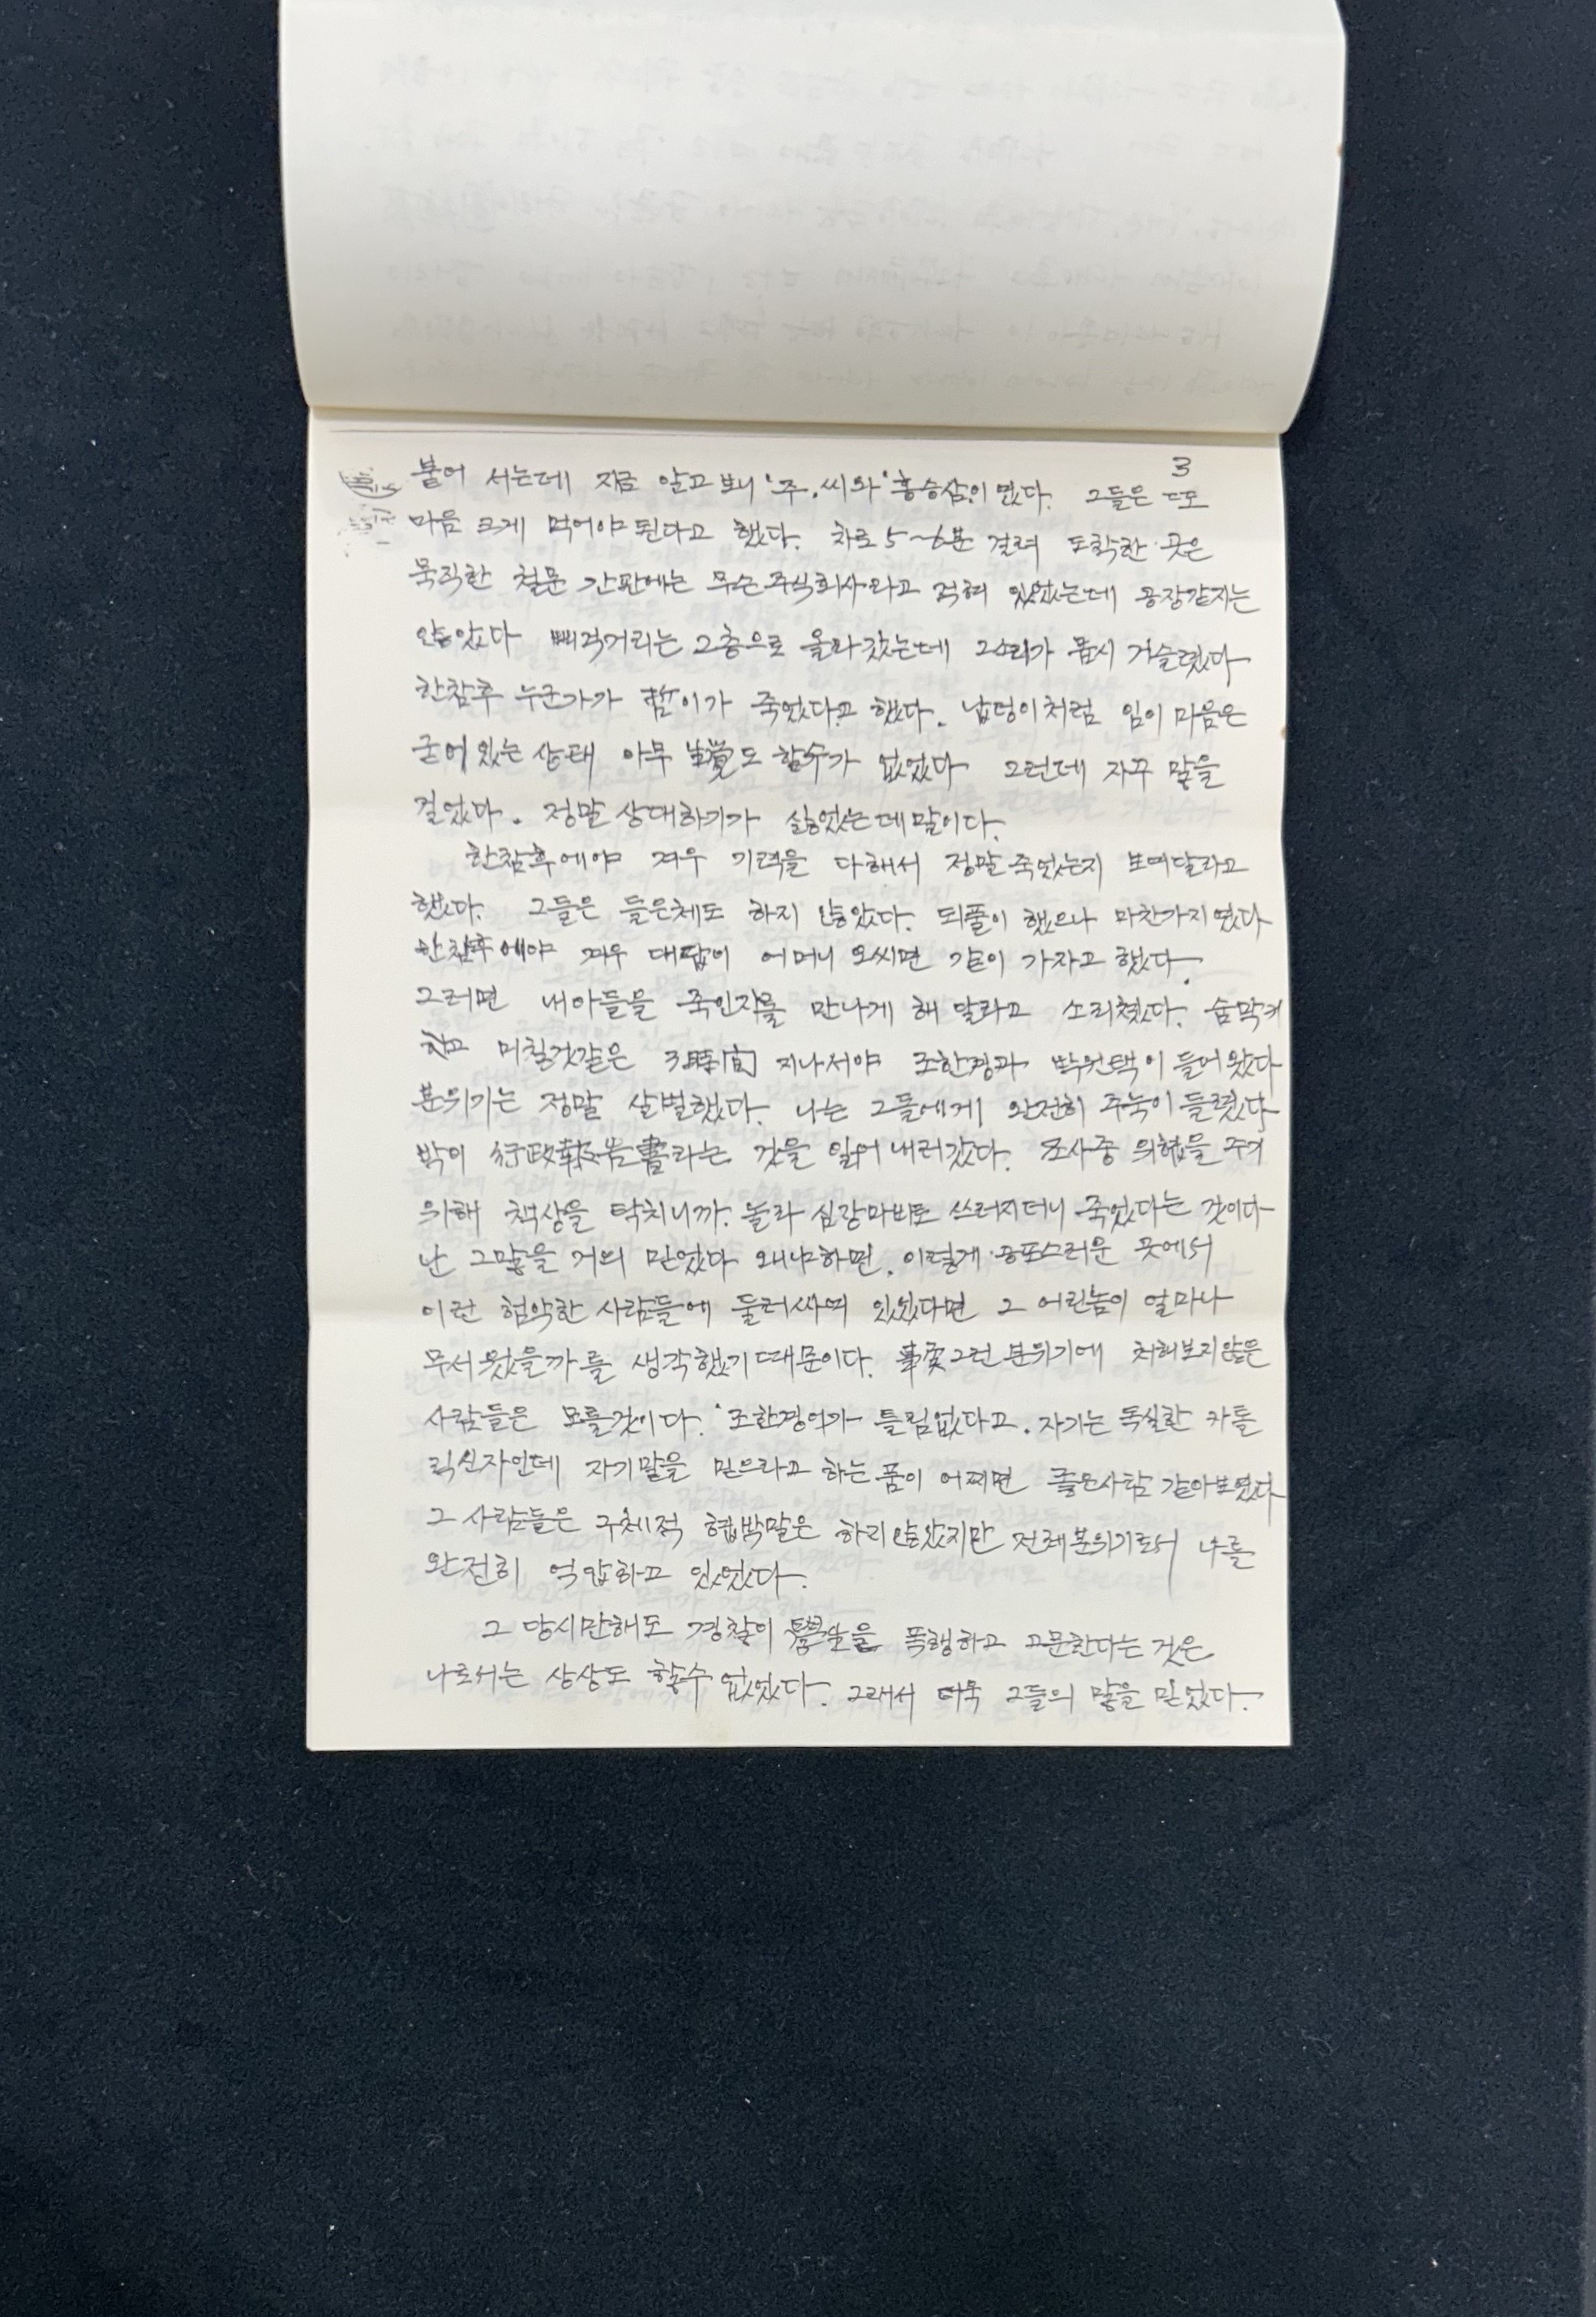 3
붙어 서는데 지금 알고 보니 '주.씨와' 홍승삼이 였다. 그들은 또
마음 크게 먹어야 된다고 했다. 차로 5~6분 걸려 도착한 곳은
묵직한 철문 간판에는 무슨 주식회사라고 적혀 있었는데 공장같지는
않았다 삐걱거리는 2층으로 올라 갔는데 그소리가 몹시 거슬렸다
한참후 누군가가 哲이가 죽었다고 했다. 납덩이처럼 임이 마음은
굳어 있는 상태 아무 生覺도 할수가 없었다 그런데 자꾸 말을
걸었다. 정말 상대하기가 싫었는데 말이다.
한참후에야 겨우 기력을 다해서 정말 죽었는지 보여달라고
했다. 그들은 들은체도 하지 않았다. 되풀이 했으나 마찬가지 였다
한참후에야 겨우 대답이 어머니 오씨면 같이 가자고 했다.
그러면 내아들을 죽인자를 만나게 해 달라고 소리쳤다. 숨막키
고 미칠것같은 3時間 지나서야 조한경과 박원택이 들어 왔다
분위기는 정말 살벌했다. 나는 그들에게 완전히 주눅이 들렸다
박이 行政報告書라는 것을 읽어 내려갔다. 조사중 위협을 주기
위해 책상을 탁치니까. 놀라 심장마비로 쓰러지더니 죽었다는 것이다
난 그말을 거의 믿었다 왜냐하면. 이렇게 공포스러운 곳에서
이런 험악한 사람들에 둘러싸여 있었다면 그 어린놈이 얼마나
무서웠을까를 생각했기 때문이다. 事實 그런 분위기에 처해보지않은
사람들은 모를것이다. 조한경이가 틀림없다고. 자기는 독실한 카톨
릭신자인데 자기말을 믿으라고 하는 품이 어쩌면 좋은사람 같아보였다
그 사람들은 구체적 협박말은 하리 않았지만 전체분위기로서 나를
완전히 억압하고 있었다.
그 당시만해도 경찰이 學生을 폭행하고 고문한다는 것은
나로서는 상상도 할수 없었다. 그래서 더욱 그들의 말을 믿었다.